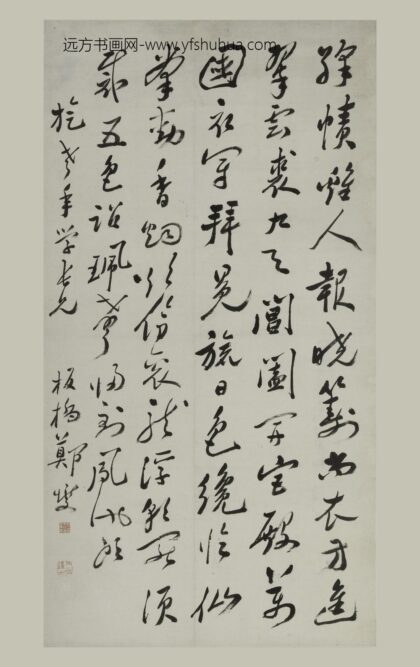 远方书画网-www.yfshuhua.com
絳幘雞人報曉籌尚衣方進
翠雲裘九天閶闔開宮殿萬
國衣冠拜冕旒日色纔臨仙
掌動香烟欲傍袞龍浮朝罷須
裁五色詔珮聲歸到鳳池頭
老年学長兄
板橋鄭燮